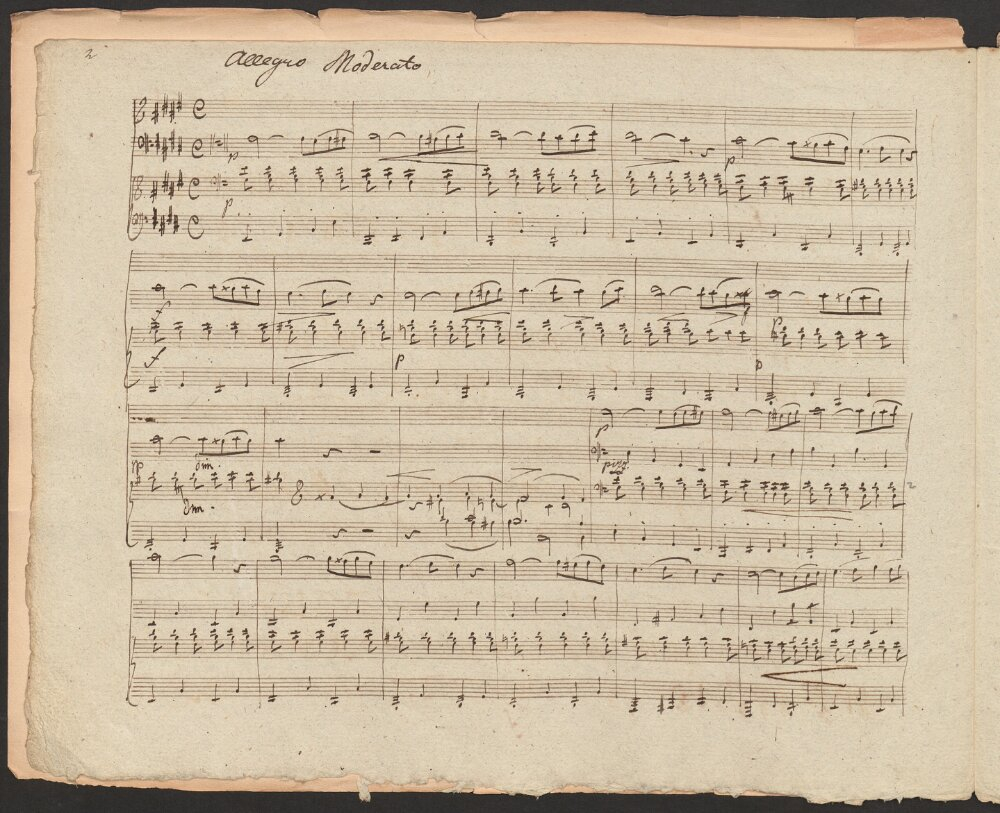 2
Allegro Moderato
p
p
p
f
f
p
p
p
dim.
dim.
p
pizz.
2